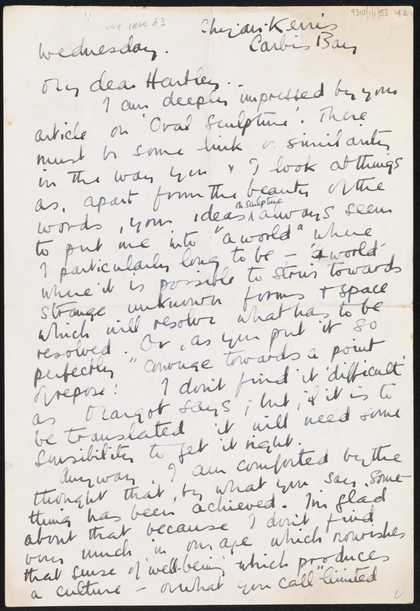 9310/1/1/53 42
Chy-an-Kerris
Wednesday. Carbis Bay
My dear Hartley.
I am deeply impressed by your
article on 'Oval Sculpture'. There
must be some link & similarity
in the way you & I look at things
as, apart from the beauty of the
words, your ideas on sculpture always seem
to put me into "a world" where
I particularly long to be – a world
where it is possible to strive towards
strange unknown forms & space
which will resolve what has to be
resolved. Or, as you put it so
perfectly "converge towards a point
of repose". I don't find it 'difficult'
as Margot says; but, if it is to
be translated it will need some
sensibility to get it right.
Anyway, I am comforted by the
thought that, by what you say, some-
thing has been achieved. I'm glad
about that because I don't find
very much in our age which nourishes
that sense of well-being which produces
a culture – or what you call "limited